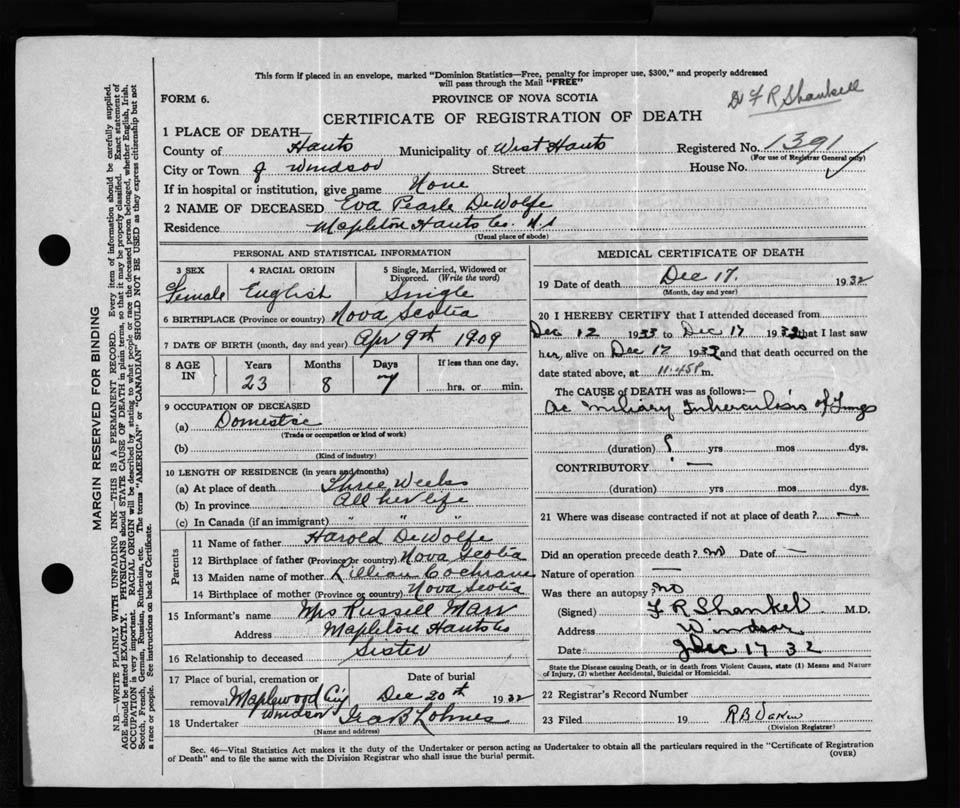 This form if placed in an envelope, marked "Dominion Statistics—Free, penalty for improper use, $300," and properly addressed
will pass through the Mail "FREE"
Dr F R Shankell
FORM 6.
PROVINCE OF NOVA SCOTIA
CERTIFICATE OF REGISTRATION OF DEATH
1 PLACE OF DEATH—
County of Hants Municipality of West Hants Registered No. 1391
(For use of Registrar General only)
City or Town of Windsor Street House No.
If in hospital or institution, give name None
2 NAME OF DECEASED Eva Pearle DeWolfe
Residence Mapleton Hants Co. N.S
(Usual place of abode)
PERSONAL AND STATISTICAL INFORMATION
3 SEX 4 RACIAL ORIGIN 5 Single, Married, Widowed or
Divorced. (Write the word)
Female English Single
6 BIRTHPLACE (Province or country) Nova Scotia
7 DATE OF BIRTH (month, day and year) Apr 9th 1909
8 AGE IN Years Months Days If less than one day,
23 8 7 hrs. or min.
9 OCCUPATION OF DECEASED
(a) Domestic
(Trade or occupation or kind of work)
(b)
(Kind of industry)
10 LENGTH OF RESIDENCE (in years and months)
(a) At place of death Three Weeks
(b) In province All her life
(c) In Canada (if an immigrant) " " "
Parents
11 Name of father Harold DeWolfe
12 Birthplace of father (Province or country) Nova Scotia
13 Maiden name of mother Lillian Cochrane
14 Birthplace of mother (Province or country) Nova Scotia
15 Informant's name Mrs Russell Marr
Address Mapleton Hants Co
16 Relationship to deceased Sister
17 Place of burial, cremation or
removal Maplewood Windsor
Date of burial
Dec 20th 1932
18 Undertaker Ira B Lohnes
(Name and address)
MEDICAL CERTIFICATE OF DEATH
19 Date of death Dec 17. 1932
(Month, day and year)
20 I HEREBY CERTIFY that I attended deceased from
Dec 12 1933 to Dec 17 1932 that I last saw
her alive on Dec 17 1932 and that death occurred on the
date stated above, at 11.45P m.
The CAUSE OF DEATH was as follows:—
Ac Miliary Tuberculosis of Lungs
(duration) ? yrs mos dys.
CONTRIBUTORY —
(duration) yrs mos dys.
21 Where was disease contracted if not at place of death? —
Did an operation precede death? no Date of —
Nature of operation —
Was there an autopsy? no
(Signed) F R Shankel M.D.
Address Windsor
Date Dec 17 32
State the Disease causing Death, or in death from Violent Causes, state (1) Means and Nature
of Injury, (2) whether Accidental, Suicidal or Homicidal.
22 Registrar's Record Number
23 Filed 19 R B
(Division Registrar)
Sec. 46—Vital Statistics Act makes it the duty of the Undertaker or person acting as Undertaker to obtain all the particulars required in the "Certificate of Registration
of Death" and to file the same with the Division Registrar who shall issue the burial permit.
(OVER)
MARGIN RESERVED FOR BINDING
N.B.—WRITE PLAINLY WITH UNFADING INK—THIS IS A PERMANENT RECORD. Every item of information should be carefully supplied.
AGE should be stated EXACTLY. PHYSICIANS should STATE CAUSE OF DEATH in plain terms, so that it may be properly classified. Exact statement of
OCCUPATION is very important. RACIAL ORIGIN will be described by stating to what people or race the deceased person belonged, whether English, Irish,
Scotch, French, German, Russian, Ruthenian, etc. The terms "AMERICAN" or "CANADIAN" SHOULD NOT BE USED as they express citizenship but not
a race or people. See instructions on back of Certificate.